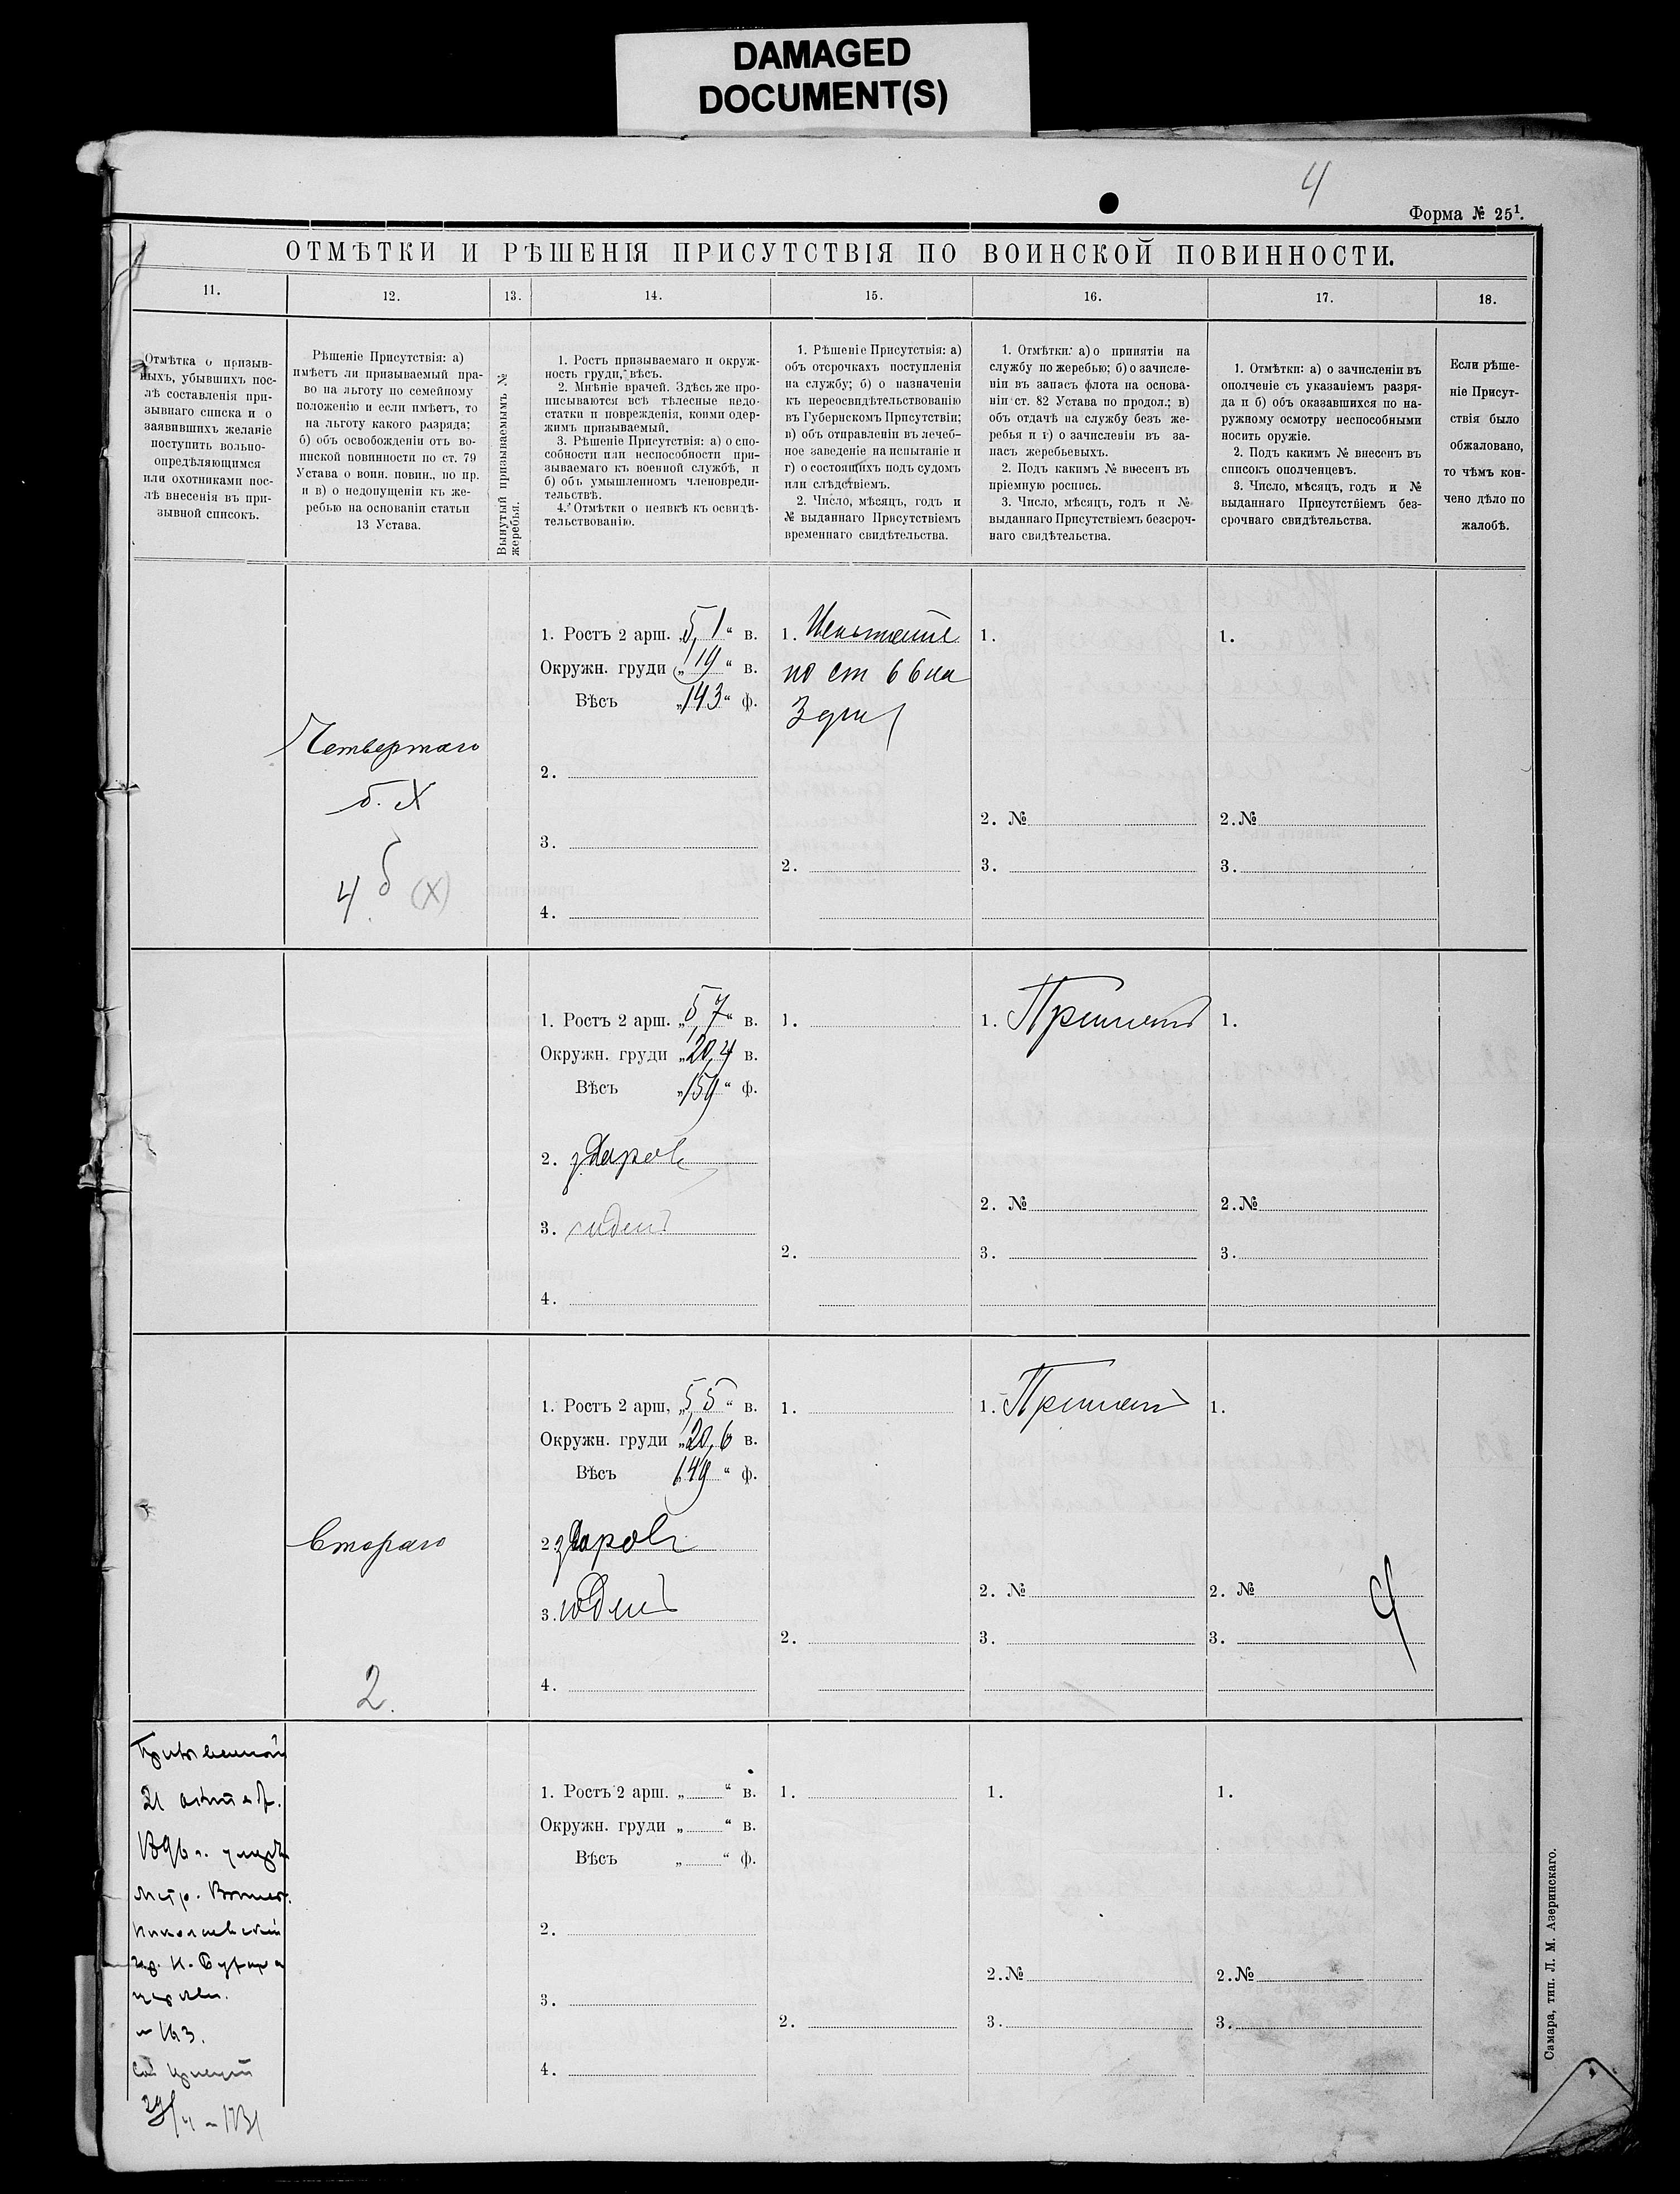 DAMAGED
DOCUMENT(S)
4
Форма № 25¹.
ОТМѢТКИ И РѢШЕНІЯ ПРИСУТСТВІЯ ПО ВОИНСКОЙ ПОВИННОСТИ.
11.
12.
13.
14.
15.
16.
17.
18.
Отмѣтка о призыв-
ныхъ, убывшихъ пос-
лѣ составленія при-
зывнаго списка и о
заявившихъ желаніе
поступить вольно-
опредѣляющимся
или охотниками пос-
лѣ внесенія въ при-
зывной списокъ.
Рѣшеніе Присутствія: а)
имѣетъ ли призываемый пра-
во на льготу по семейному
положенію и если имѣетъ, то
на льготу какого разряда;
б) объ освобожденіи отъ во-
инской повинности по ст. 79
Устава о воин. повин., по пр.
и в) о недопущеніи къ же-
ребью на основаніи статьи
13 Устава.
Вынутый призываемымъ №
жеребья.
1. Ростъ призываемаго и окруж-
ность груди, вѣсъ.
2. Мнѣніе врачей. Здѣсь же про-
писываются всѣ тѣлесные недо-
статки и поврежденія, коими одер-
жимъ призываемый.
3. Рѣшеніе Присутствія: а) о спо-
собности или неспособности при-
зываемаго къ военной службѣ, и
б) объ умышленномъ членовреди-
тельствѣ.
4. Отмѣтки о неявкѣ къ освидѣ-
тельствованію.
1. Рѣшеніе Присутствія: а)
объ отсрочкахъ поступленія
на службу; б) о назначеніи
къ переосвидѣтельствованію
въ Губернскомъ Присутствіи;
в) объ отправленіи въ лечеб-
ное заведеніе на испытаніе и
г) о состоящихъ подъ судомъ
или слѣдствіемъ.
2. Число, мѣсяцъ, годъ и
№ выданнаго Присутствіемъ
временнаго свидѣтельства.
1. Отмѣтки: а) о принятіи на
службу по жеребью; б) о зачисле-
ніи въ запасъ флота на основа-
ніи ст. 82 Устава по продол.; в)
объ отдачѣ на службу безъ же-
ребья и г) о зачисленіи въ за-
пасъ жеребьевыхъ.
2. Подъ какимъ № внесенъ въ
пріемную роспись.
3. Число, мѣсяцъ, годъ и №
выданнаго Присутствіемъ безсроч-
наго свидѣтельства.
1. Отмѣтки: а) о зачисленіи въ
ополченіе съ указаніемъ разря-
да и б) объ оказавшихся по на-
ружному осмотру неспособными
носить оружіе.
2. Подъ какимъ № внесенъ въ
списокъ ополченцевъ.
3. Число, мѣсяцъ, годъ и №
выданнаго Присутствіемъ без-
срочнаго свидѣтельства.
Если рѣше-
ніе Присут-
ствія было
обжаловано,
то чѣмъ кон-
чено дѣло по
жалобѣ.
Четвертаго
б. Х
4 б (X)
1. Ростъ 2 арш. „5,1“ в.
Окружн. груди „19“ в.
Вѣсъ „143“ ф.
2.
3.
4.
1.
по ст 66 на
2.
1.
2. №
3.
1.
2. №
3.
1. Ростъ 2 арш. „5,7“ в.
Окружн. груди „20,4 в.
Вѣсъ „159“ ф.
2. здоровъ
3. годенъ
4.
1.
2.
1. Принятъ
2. №
3.
1.
2. №
3.
Втораго
2.
1. Ростъ 2 арш. „5,5“ в.
Окружн. груди „20,6 в.
Вѣсъ 149“ ф.
2. здоровъ
3. годенъ
4.
1.
2.
1. Принятъ
2. №
3.
1.
2. №
3.
21 октяб.
1896 г.
Николаевскій
№ 163.
1. Ростъ 2 арш. „ “ в.
Окружн. груди „ “ в.
Вѣсъ „ “ ф.
2.
3.
4.
1.
2.
1.
2. №
3.
1.
2. №
3.
Самара, тип. Л. М. Азеринскаго.